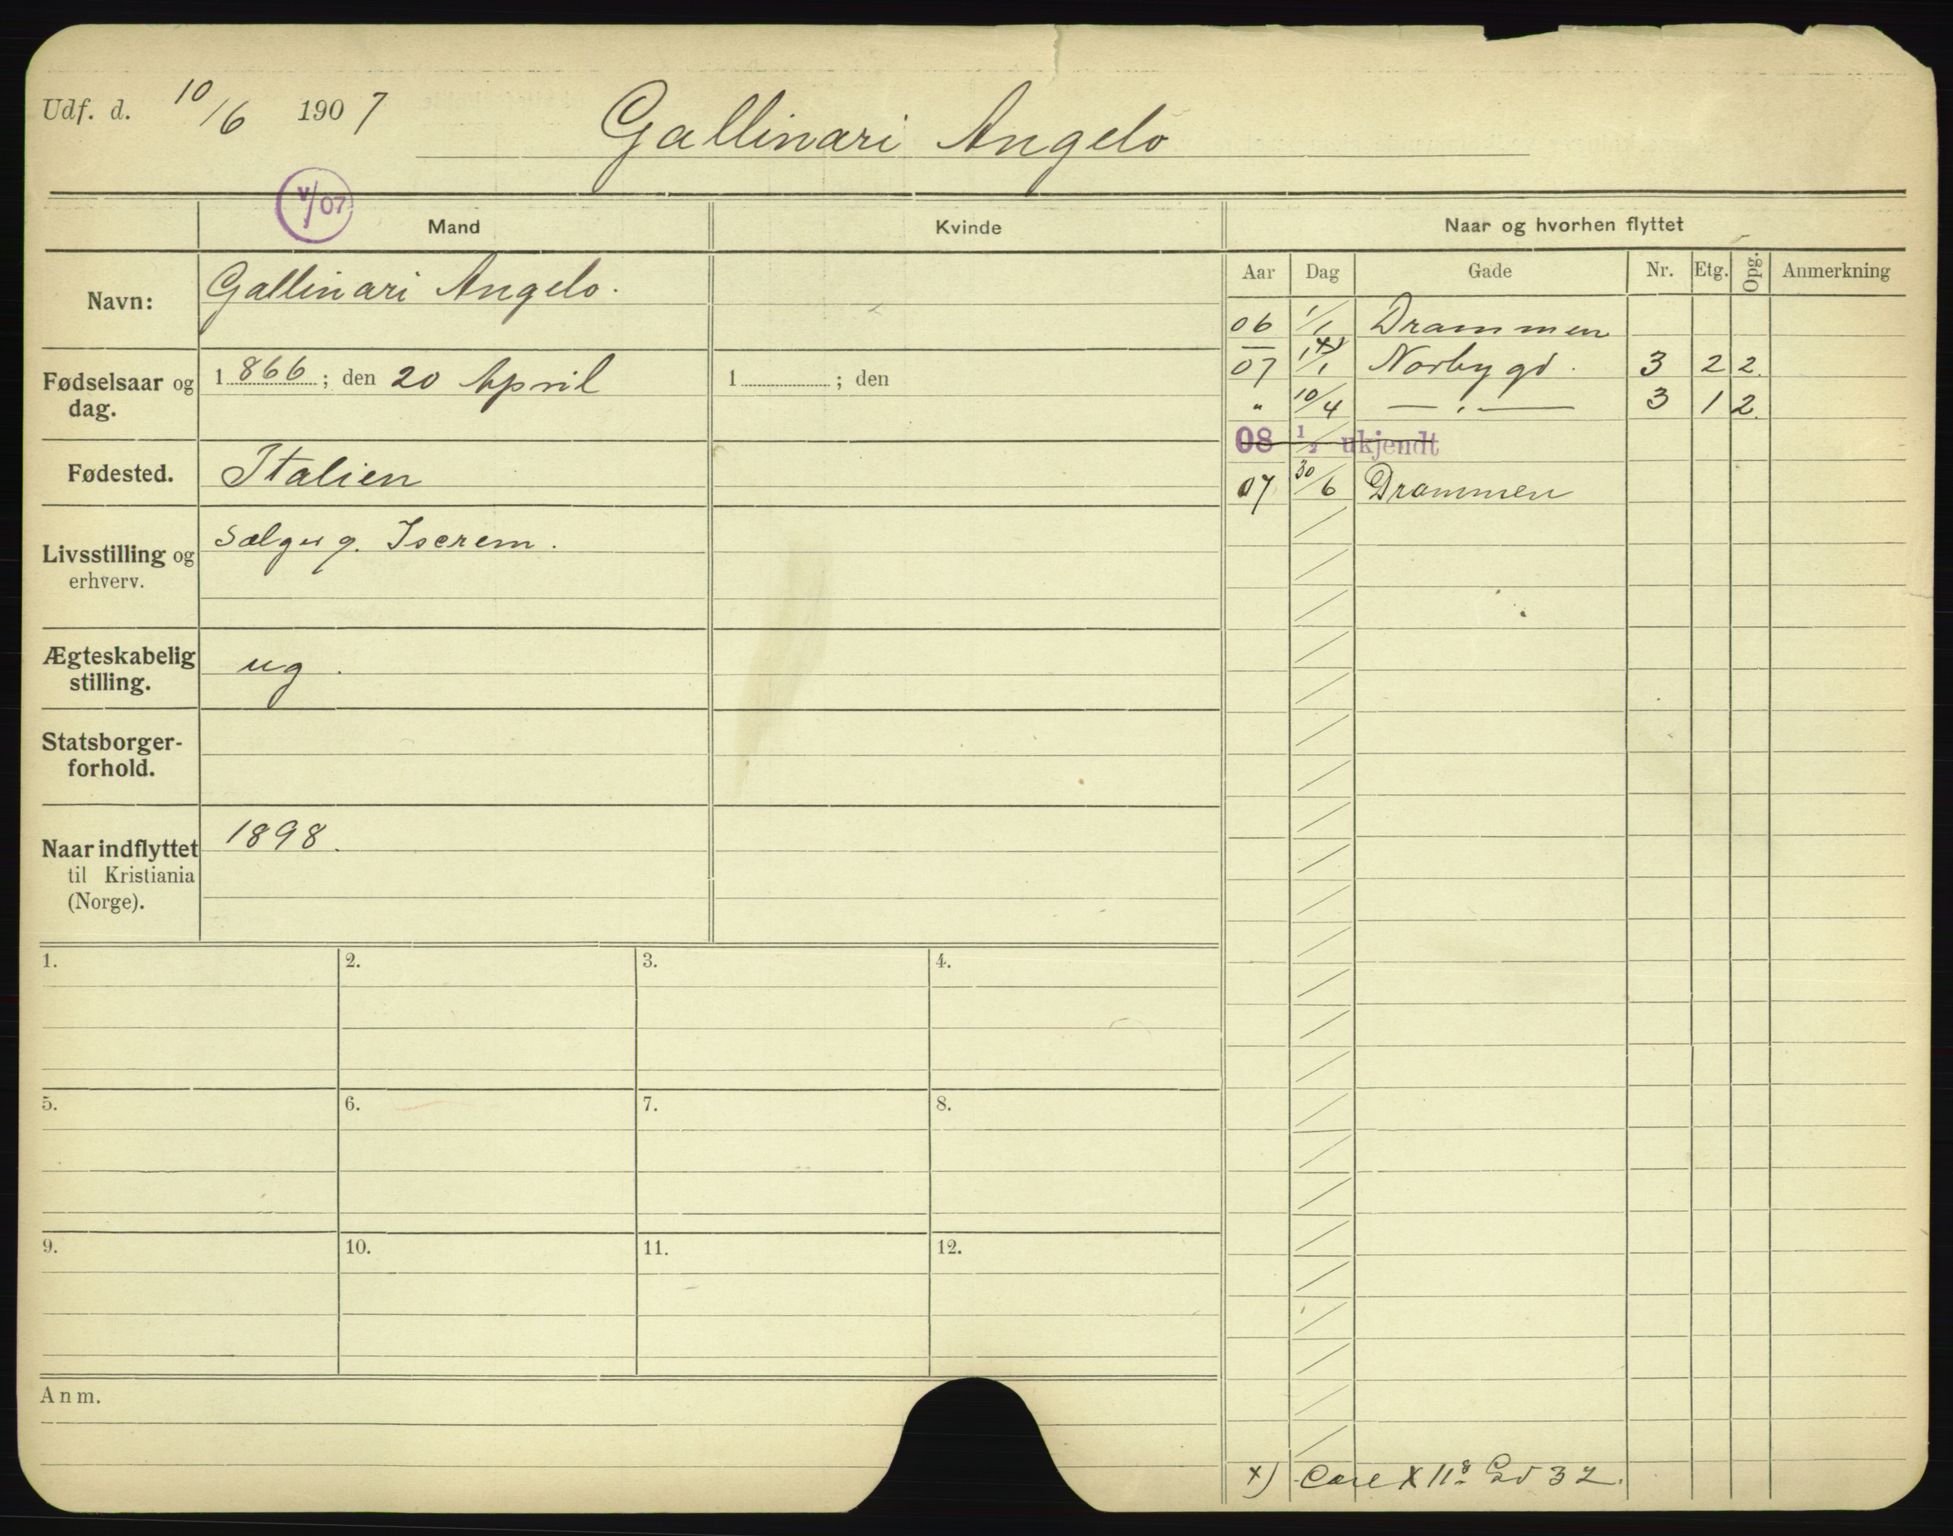 Udf. d. 10/6 1907
Gallinari Angelo
V/07
Mand
Kvinde
Naar og hvorhen flyttet
Navn:
Gallinari Angelo.
Fødselsaar og dag.
1866; den 20 April
1 ; den
Fødested.
Italien
Livsstilling og
erhverv.
Sælger g. Iscrem.
Ægteskabelig
stilling.
ug.
Statsborger-
forhold.
Naar indflyttet
til Kristiania
(Norge).
1898.
Aar Dag Gade Nr. Etg. Opg. Anmerkning
06 1/1 Drammen
07 1/1 x) Norbygd. 3 2 2.
" 10/4 —"— 3 1 2.
08 1/2 ukjendt
07 30/6 Drammen
1. 2. 3. 4.
5. 6. 7. 8.
9. 10. 11. 12.
Anm.
x) Carl X II's Gd 32.